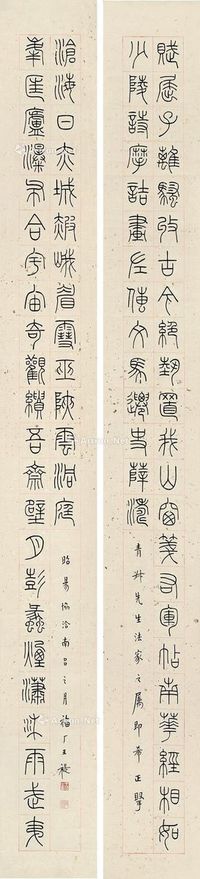 滄海日赤城霞峨眉雪巫峽雲洞庭
峰匡廬瀑布合宇宙奇觀繪吾齋壁月彭蠡煙瀟湘雨武夷
昭陽協洽南呂之月福厂王禔
少陵詩摩詰畫左傳文馬遷史薛濤
賦屈子離騷收古今絕藝置我山窗箋右軍帖南華經相如
先生法家之屬即希正